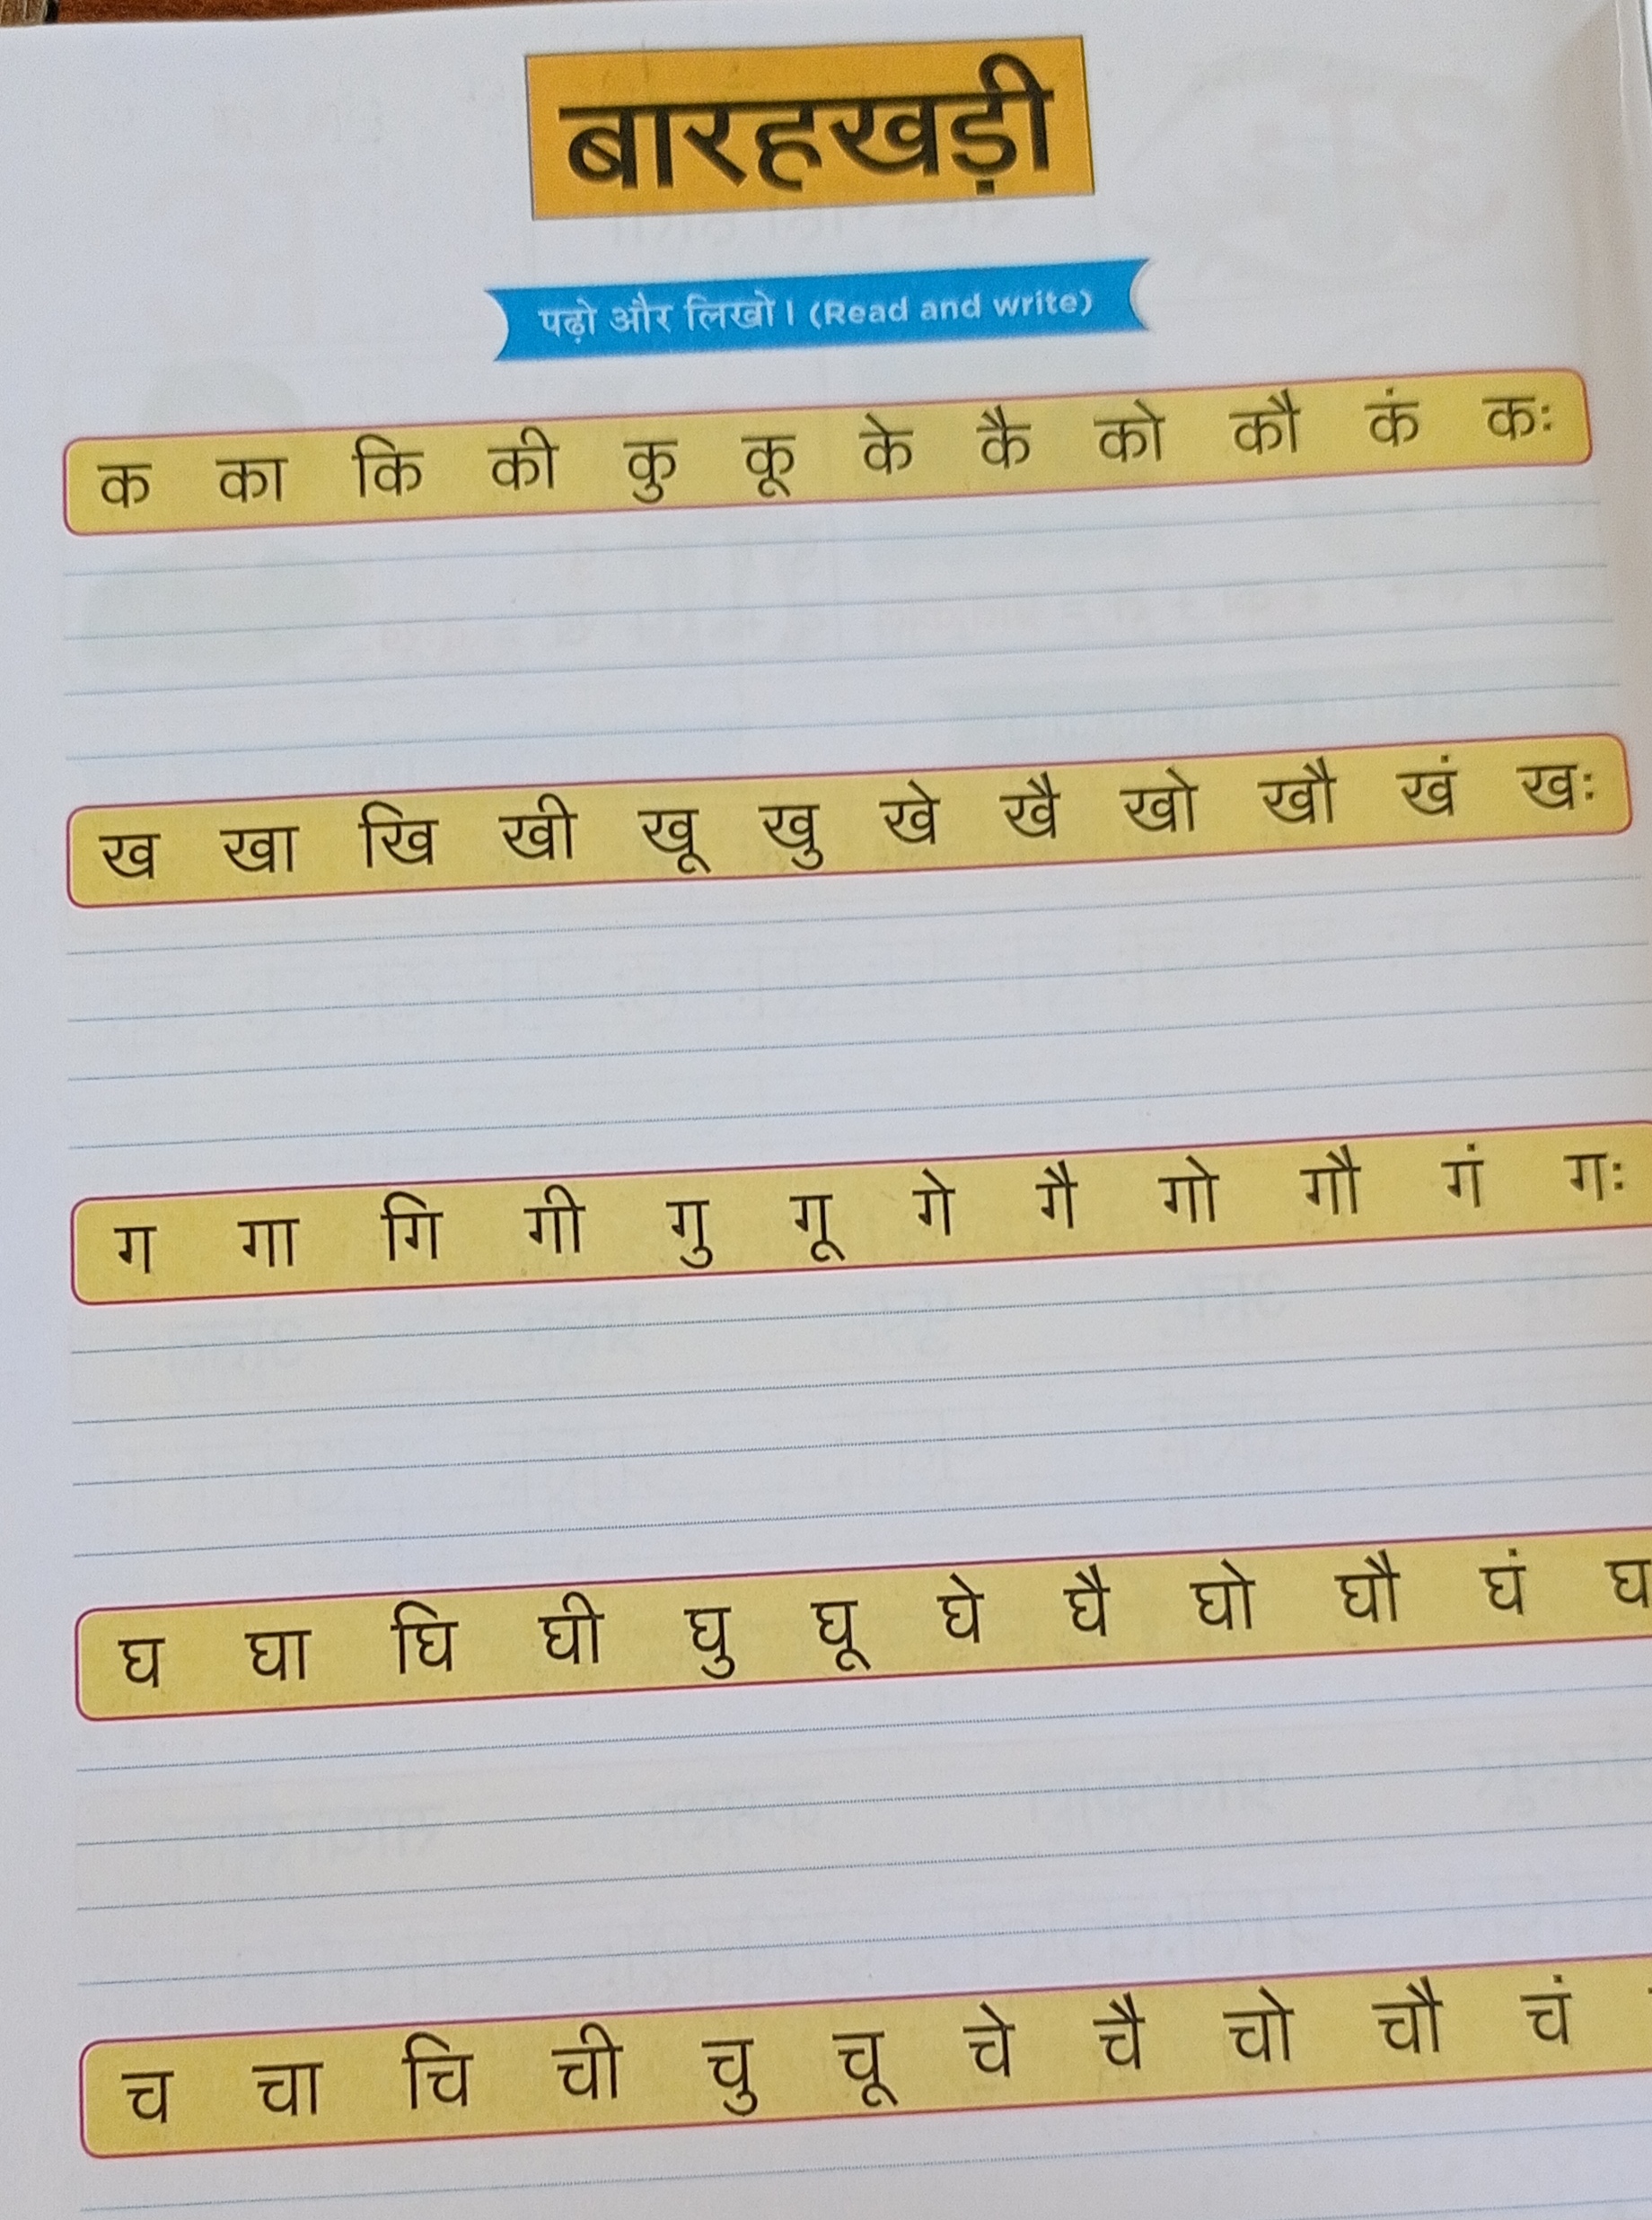 बारहखड़ी
पढ़ो और लिखो। (Read and write)
क का कि की कु कू के कै को कौ कं कः
ख खा खि खी खू खु खे खै खो खौ खं खः
ग गा गि गी गु गू गे गै गो गौ गं गः
घ घा घि घी घु घू घे घै घो घौ घं घ
च चा चि ची चु चू चे चै चो चौ चं